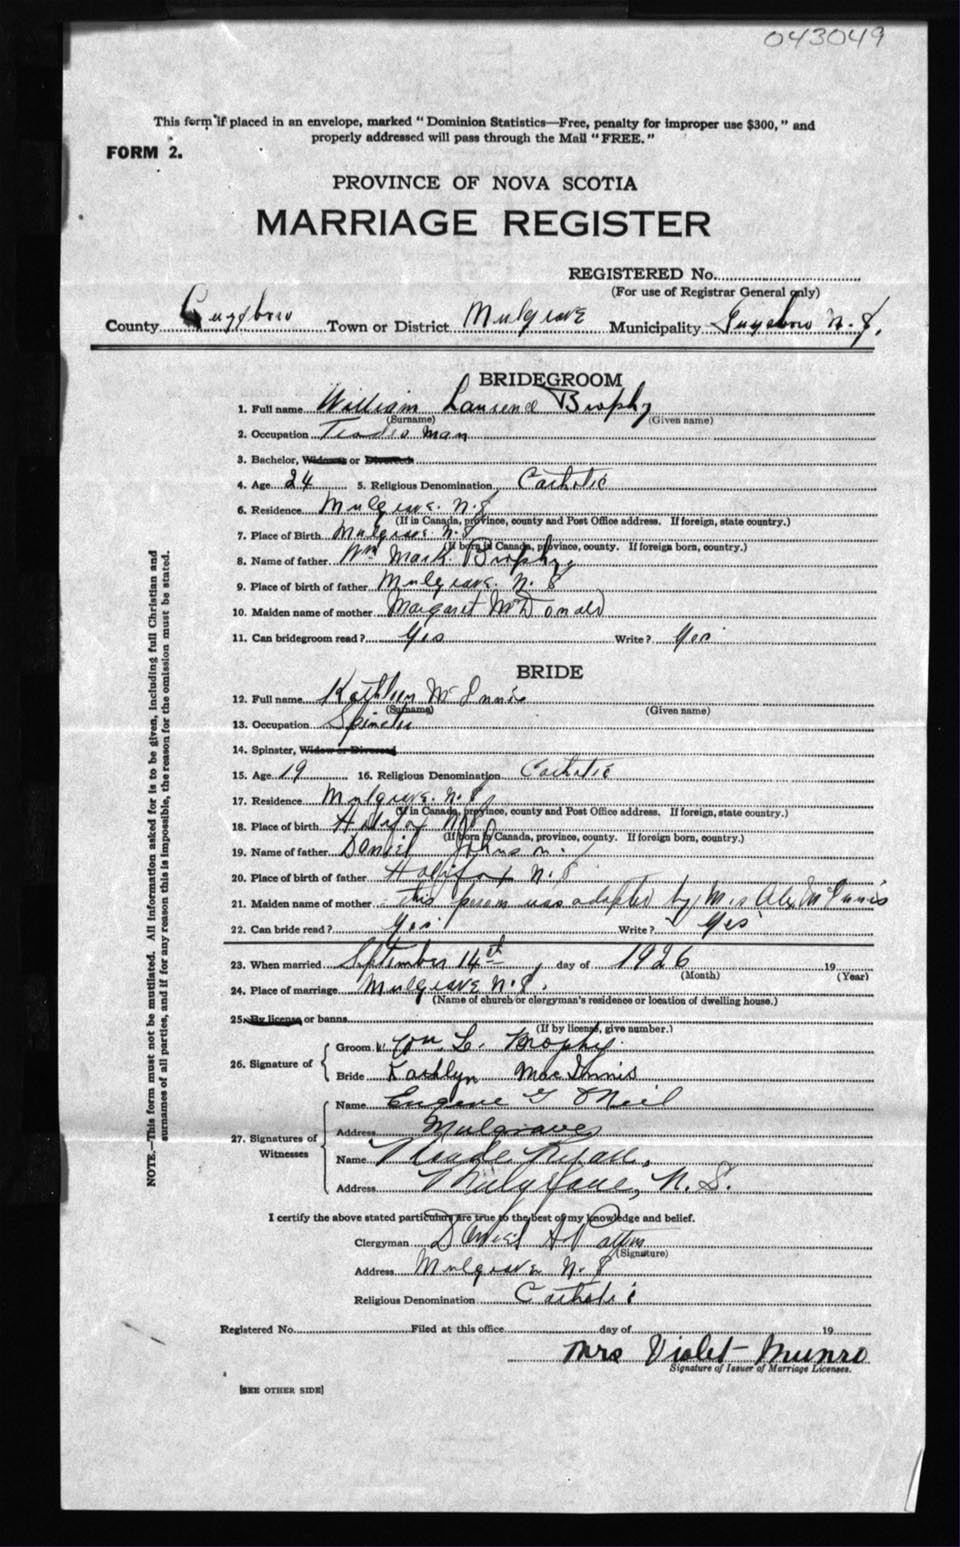 043049
This form if placed in an envelope, marked "Dominion Statistics—Free, penalty for improper use $300," and
properly addressed will pass through the Mail "FREE."
FORM 2.
PROVINCE OF NOVA SCOTIA
MARRIAGE REGISTER
REGISTERED No.
(For use of Registrar General only)
County Guysboro Town or District Mulgrave Municipality Guysboro N.S.
BRIDEGROOM
1. Full name William Laurence Brophy
(Surname) (Given name)
2. Occupation Trades man
3. Bachelor, Widower or Divorced
4. Age 24 5. Religious Denomination Catholic
6. Residence Mulgrave. N.S
(If in Canada, province, county and Post Office address. If foreign, state country.)
7. Place of Birth Mulgrave N.S
(If born in Canada, province, county. If foreign born, country.)
8. Name of father Wm Mark Brophy
9. Place of birth of father Mulgrave. N.S
10. Maiden name of mother Margaret McDonald
11. Can bridegroom read? Yes Write? Yes
BRIDE
12. Full name Kathleen McInnis
(Surname) (Given name)
13. Occupation Spinster
14. Spinster, Widow or Divorced
15. Age 19 16. Religious Denomination Catholic
17. Residence Mulgrave. N.S
(If in Canada, province, county and Post Office address. If foreign, state country.)
18. Place of birth Halifax N.S
(If born in Canada, province, county. If foreign born, country.)
19. Name of father Daniel Johnson.
20. Place of birth of father Halifax N.S
21. Maiden name of mother this person was adopted by Mrs Alex McInnis
22. Can bride read? Yes Write? Yes
23. When married September 14th day of 1926 19
(Month) (Year)
24. Place of marriage Mulgrave N.S.
(Name of church or clergyman's residence or location of dwelling house.)
25. By license or banns
(If by license, give number.)
26. Signature of
Groom Wm L. Brophy.
Bride Kathlyn MacInnis
27. Signatures of Witnesses
Name Eugene G O'Neil
Address Mulgrave
Name Maude
Address Mulgrave, N.S.
I certify the above stated particulars are true to the best of my knowledge and belief.
Clergyman Daniel A Patton
(Signature)
Address Mulgrave N.S
Religious Denomination Catholic
Registered No. Filed at this office day of 19
Mrs Violet Munro
Signature of Issuer of Marriage Licenses.
[SEE OTHER SIDE]
NOTE.—This form must not be mutilated. All information asked for is to be given, including full Christian and
surnames of all parties, and if for any reason this is impossible, the reason for the omission must be stated.